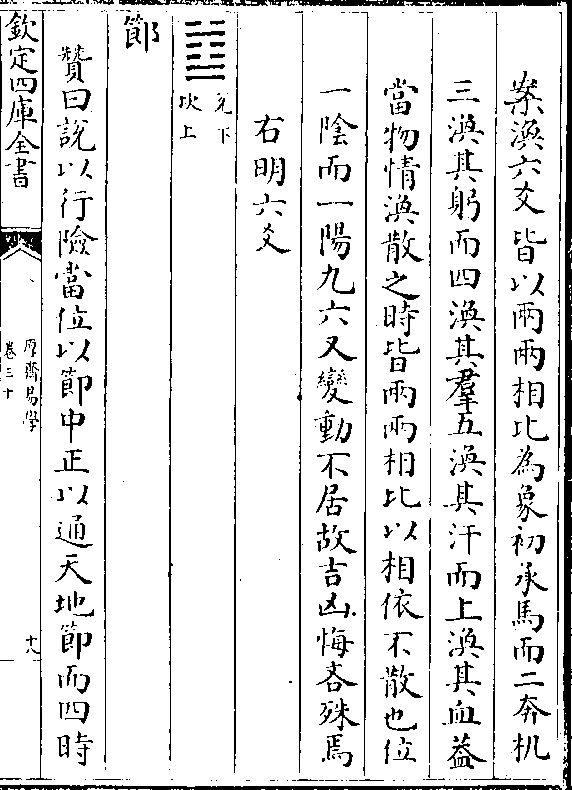 案渙六爻皆以兩兩相比為象初承馬而二奔机
三渙其躬而四渙其羣五渙其汗而上渙其血葢
當物情渙散之時皆兩兩相比以相依不散也位
一陰而一陽九六又變動不居故吉凶悔吝殊焉
右明六爻
兌下
坎上
節
贊曰說以行險當位以節中正以通天地節而四時
欽定四庫全書
厚齋易學
卷三十
十八